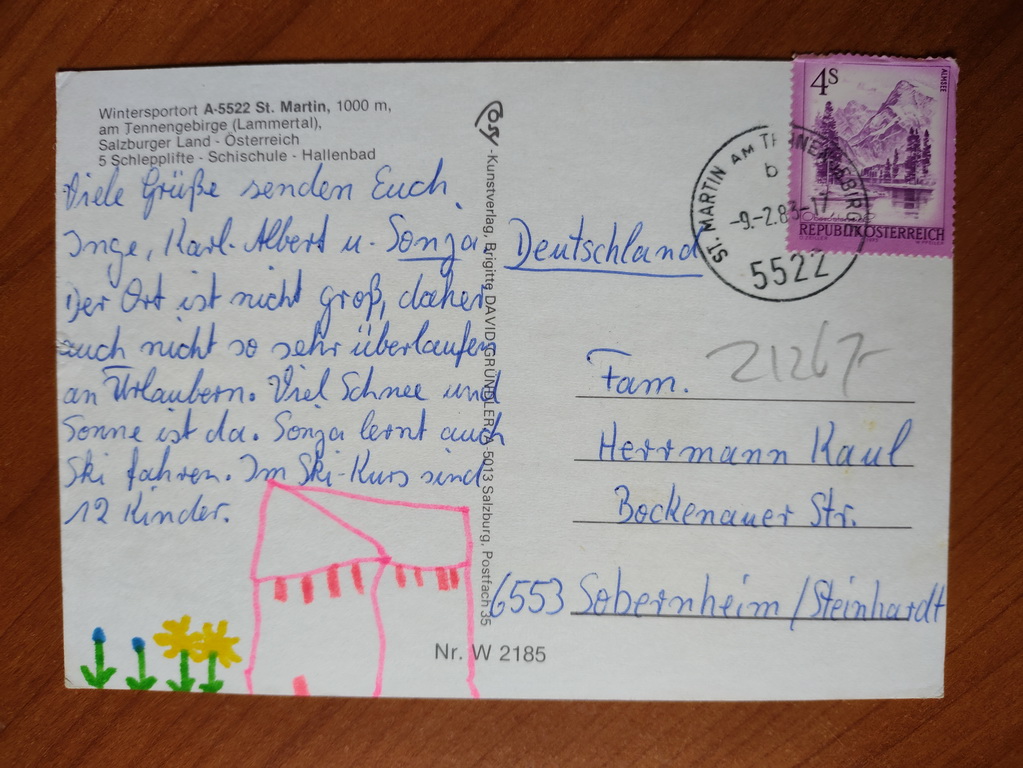 Wintersportort A-5522 St. Martin, 1000 m,
am Tennengebirge (Lammertal),
Salzburger Land - Österreich
5 Schlepplifte - Schischule - Hallenbad
Viele Grüße senden Euch
Inge, Karl-Albert u. Sonja
Der Ort ist nicht groß, daher
auch nicht so sehr überlaufen
an Urlaubern. Viel Schnee und
Sonne ist da. Sonja lernt auch
Ski fahren. Im Ski-Kurs sind
12 Kinder.
Cosy-Kunstverlag, Brigitte DAVID-GRÜNDLER, A-5013 Salzburg, Postfach 35
Nr. W 2185
4S
ALMSEE
REPUBLIK ÖSTERREICH
ST. MARTIN AM TENNENGEBIRGE
b
-9.-2.83-17
5522
Deutschland
21267-
Fam.
Herrmann Kaul
Bockenauer Str.
6553 Sobernheim/Steinhardt